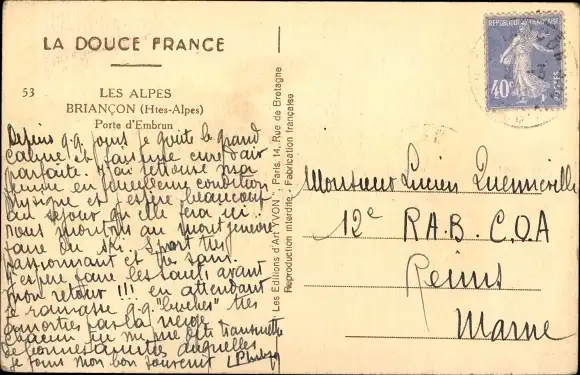 LA DOUCE FRANCE
53 LES ALPES
BRIANÇON (Htes-Alpes)
Porte d'Embrun
Depuis q.q. jours je goûte le grand
calme et fais une cure d'air
parfaite. J'ai retrouvé ma
femme en excellente condition
physique et j'espère beaucoup
au séjour qu'elle fera ici.
nous montons au montgenèvre
faire du ski. Sport très
passionnant et de sain.
J'espère faire les sauts avant
mon retour !!! en attendant
je ramasse q.q. "bûches" très
amorties par la neige
me prie de te transmettre
de bonnes amitiés auxquelles
je joins mon bon souvenir
Les Editions d'Art "YVON". Paris, 14, Rue de Bretagne
Reproduction interdite - Fabrication française
REPUBLIQUE FRANÇAISE
40c
POSTES
Monsieur Lucien Quenneville
12e R.A.B. C.O.A
Reims
Marne